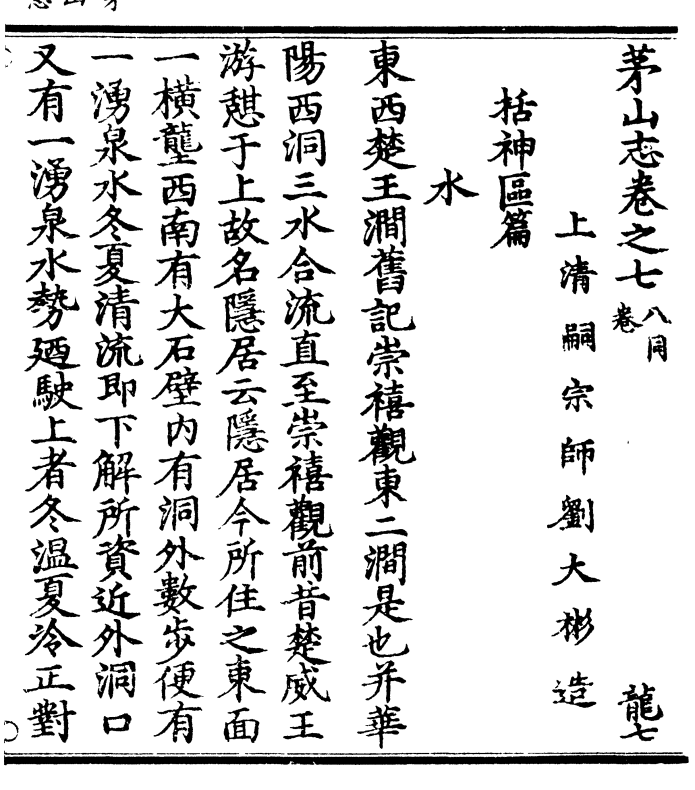 茅山志卷之七 八同卷 龍七
上清嗣宗師劉大彬造
括神區篇
水
東西楚王澗舊記崇禧觀東二澗是也并華
陽西洞三水合流直至崇禧觀前昔楚威王
游憩于上故名隱居云隱居今所住之東面
一橫壟西南有大石壁內有洞外數步便有
一湧泉水冬夏清流即下解所資近外洞口
又有一湧泉水勢迺駛上者冬溫夏冷正對